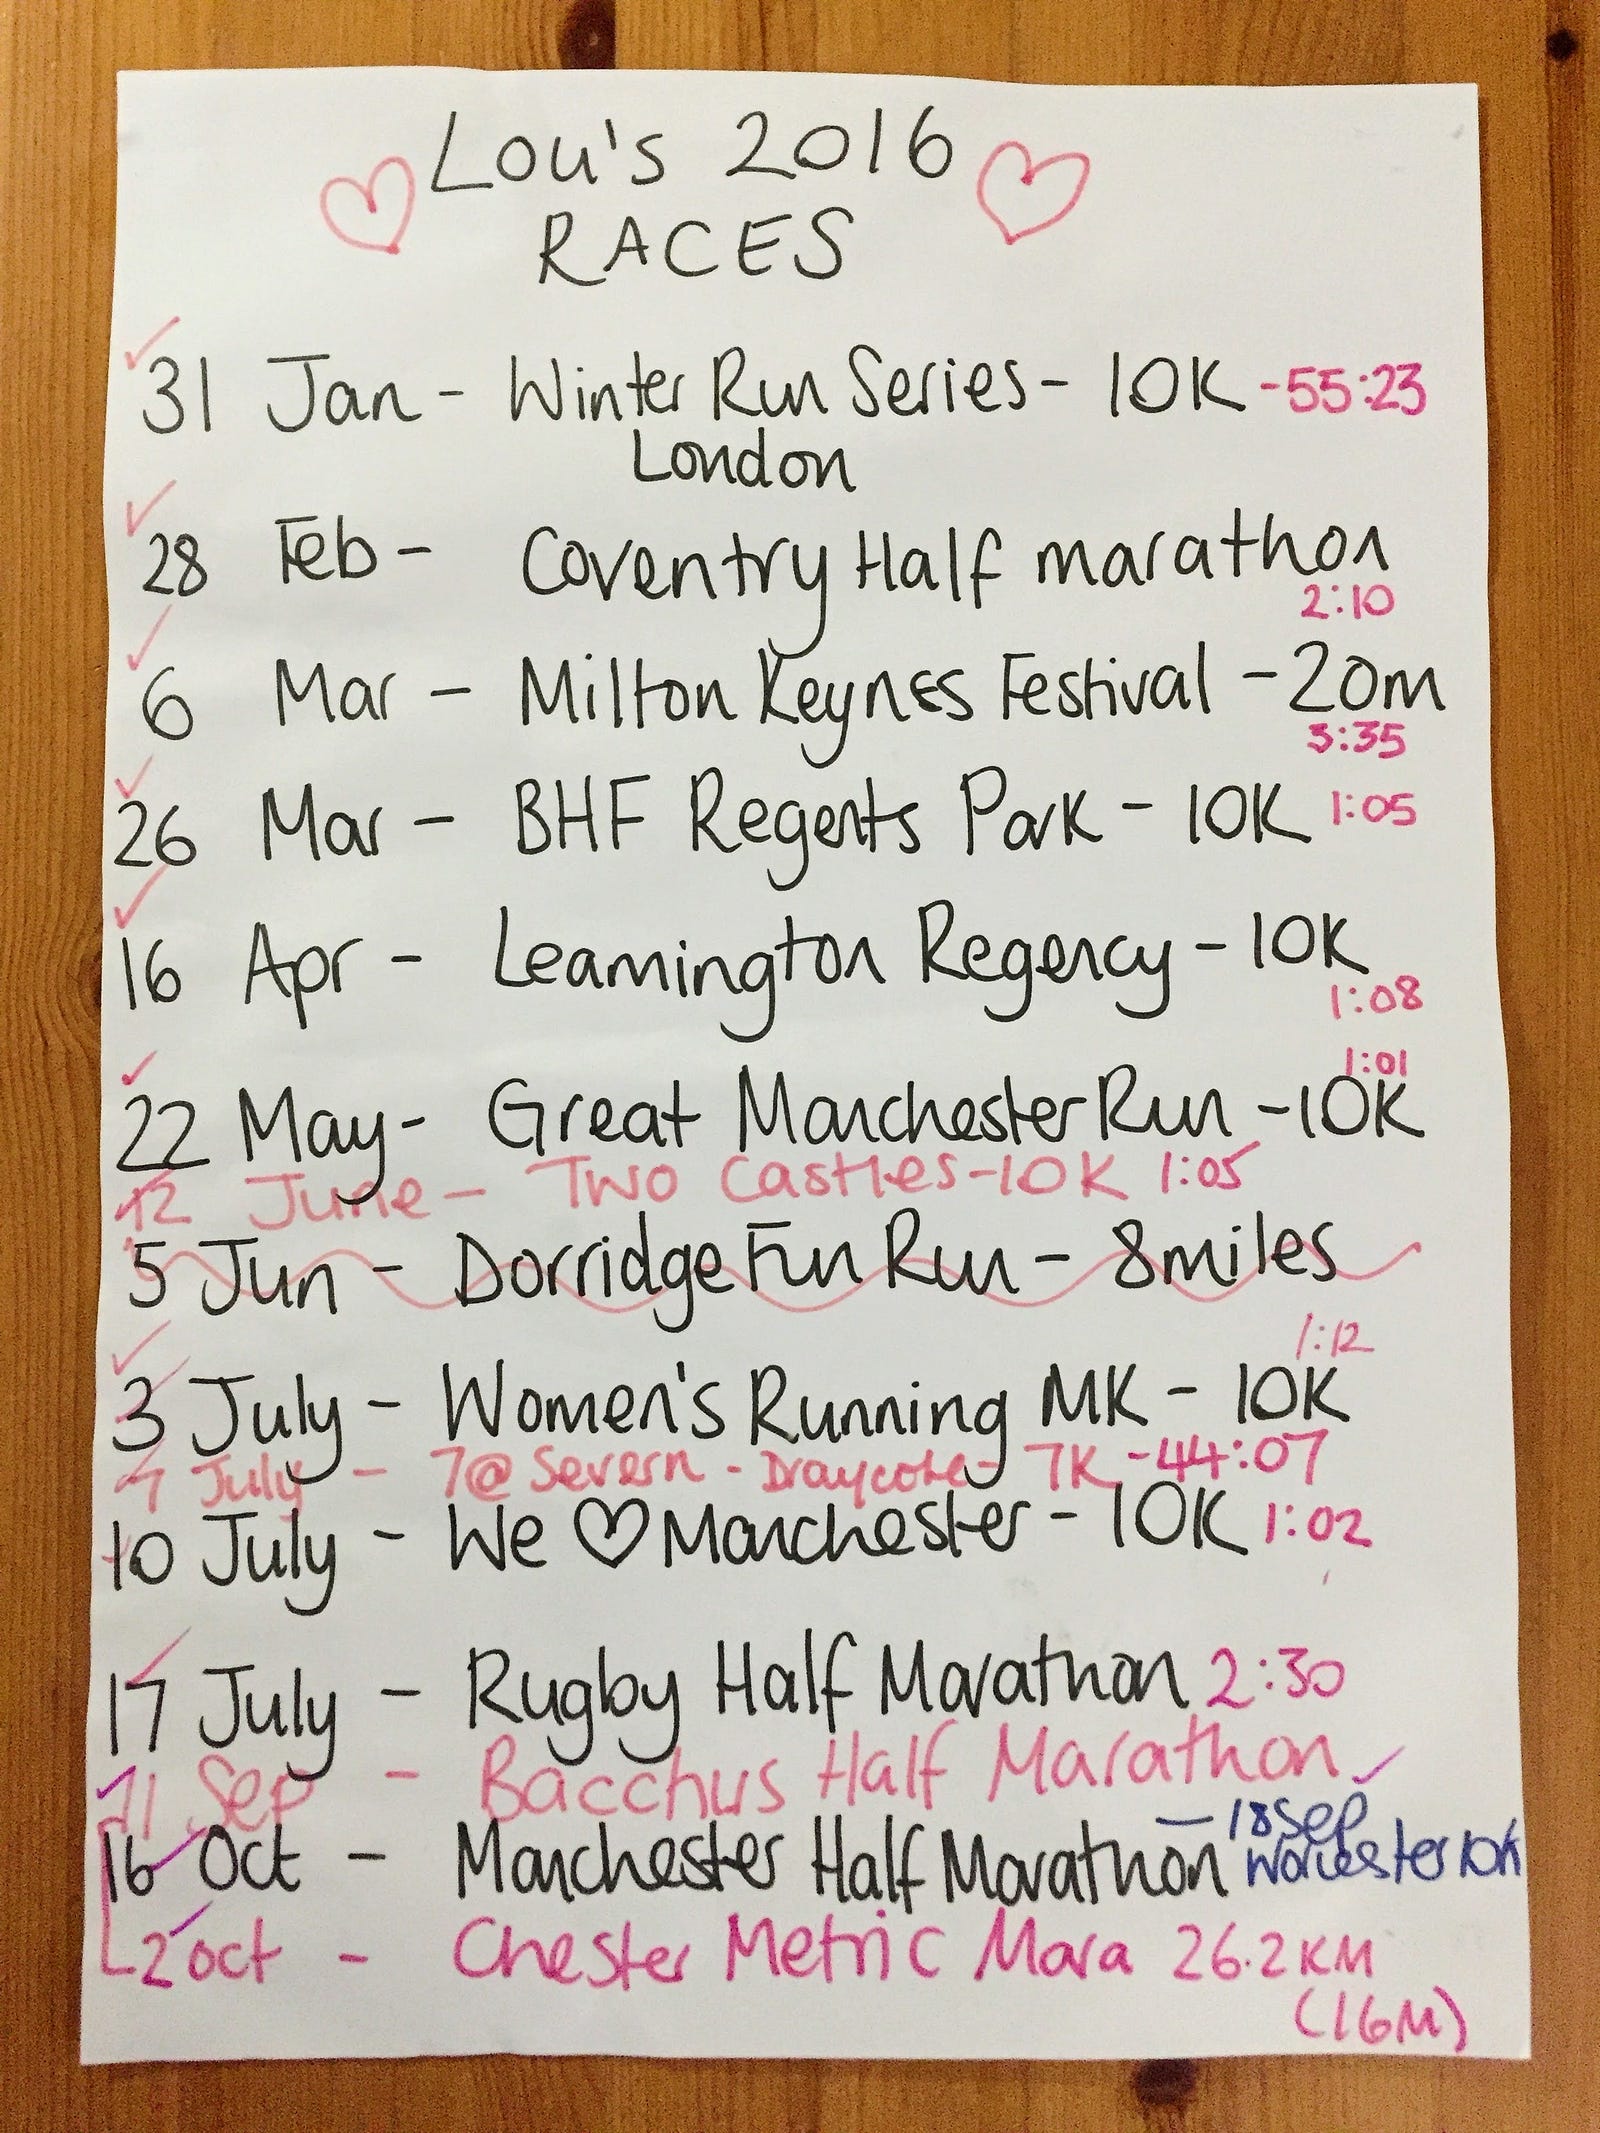 Lou's 2016
RACES
31 Jan - Winter Run Series - 10K - 55:23
London
28 Feb - Coventry Half marathon
2:10
6 Mar - Milton Keynes Festival - 20m
3:35
26 Mar - BHF Regents Park - 10K 1:05
16 Apr - Leamington Regency - 10K
1:08
1:01
22 May - Great Manchester Run - 10K
12 June - Two Castles - 10K 1:05
5 Jun - Dorridge Fun Run - 8miles
1:12
3 July - Women's Running MK - 10K
7 July - 7@ Severn - Draycote - 7K - 44:07
10 July - We ♡ Manchester - 10K 1:02
17 July - Rugby Half Marathon 2:30
11 Sep - Bacchus Half Marathon
- 18 Sep
16 Oct - Manchester Half Marathon Worcester 10K
2 Oct - Chester Metric Mara 26.2KM
(16M)